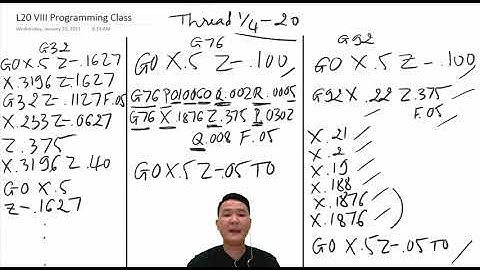 L20 VIII Programming Class
Wednesday, January 20, 2021 8:13 AM
Thread 1/4-20
G32
G0 X.5 Z-.1627
X.3196 Z-.1627
G32 Z-.1127 F.05
X.2537 Z-.0627
Z.375
X.3196 Z.40
G0 X.5
Z-.1627
.
.
G76
G0 X.5 Z-.100
G76 P010060 Q.002 R.0005
G76 X.1876 Z.375 P.0302
Q.008 F.05
G0 X.5 Z-.05 T0
G92
G0 X.5 Z-.100
G92 X.22 Z.375
F.05
X.21
X.2
X.19
X.188
X.1876
X.1876
G0 X.5 Z-.05 T0